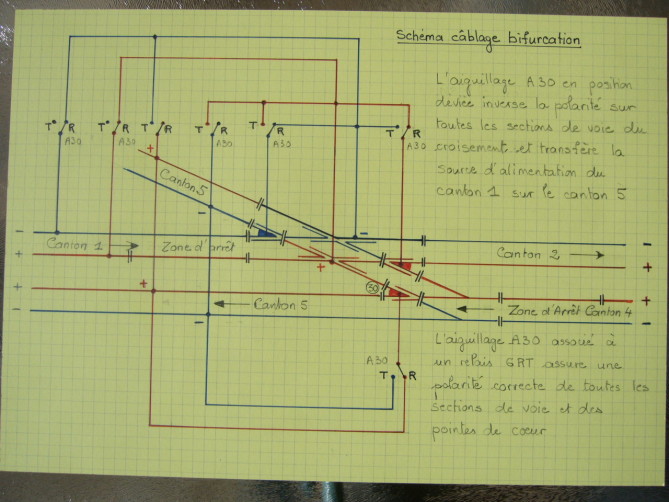 Schéma câblage bifurcation
L'aiguillage A30 en position
déviée inverse la polarité sur
toutes les sections de voie du
croisement et transfère la
source d'alimentation du
canton 1 sur le canton 5
T R T R T R T R T R T R
A30 A30 A30 A30 A30
+
Canton 5
-
-
- -
Canton 1 Zone d'arrêt Canton 2
+ + +
+ + 30 +
Canton 5 Zone d'Arrêt Canton 4
- - -
L'aiguillage A30 associé à
un relais GRT assure une
polarité correcte de toutes les
sections de voie et des
pointes de cœur
A30
T R